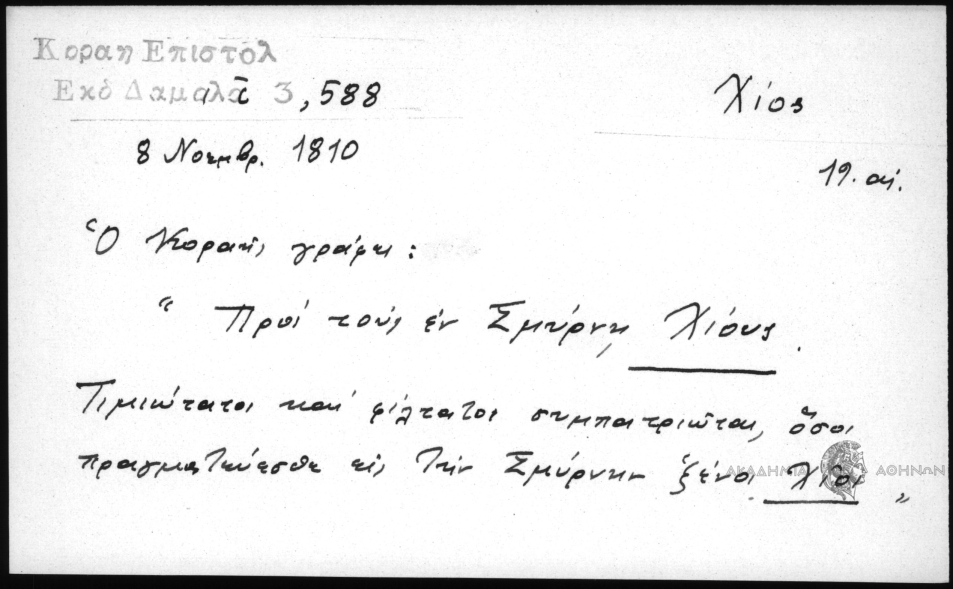 Κοραη Επιστολ
Εκδ Δαμαλᾶ 3, 588
Χίος
8 Νοεμβρ. 1810
19. αἰ.
Ὁ Κοραῆς γράφει:
“ Πρὸς τοὺς ἐν Σμύρνῃ Χίους.
Τιμιώτατοι καὶ φίλτατοι συμπατριῶται, ὅσοι
πραγματεύεσθε εἰς τὴν Σμύρνην ξένοι Χῖοι „
ΑΚΑΔΗΜΙΑ ΑΘΗΝΩΝ